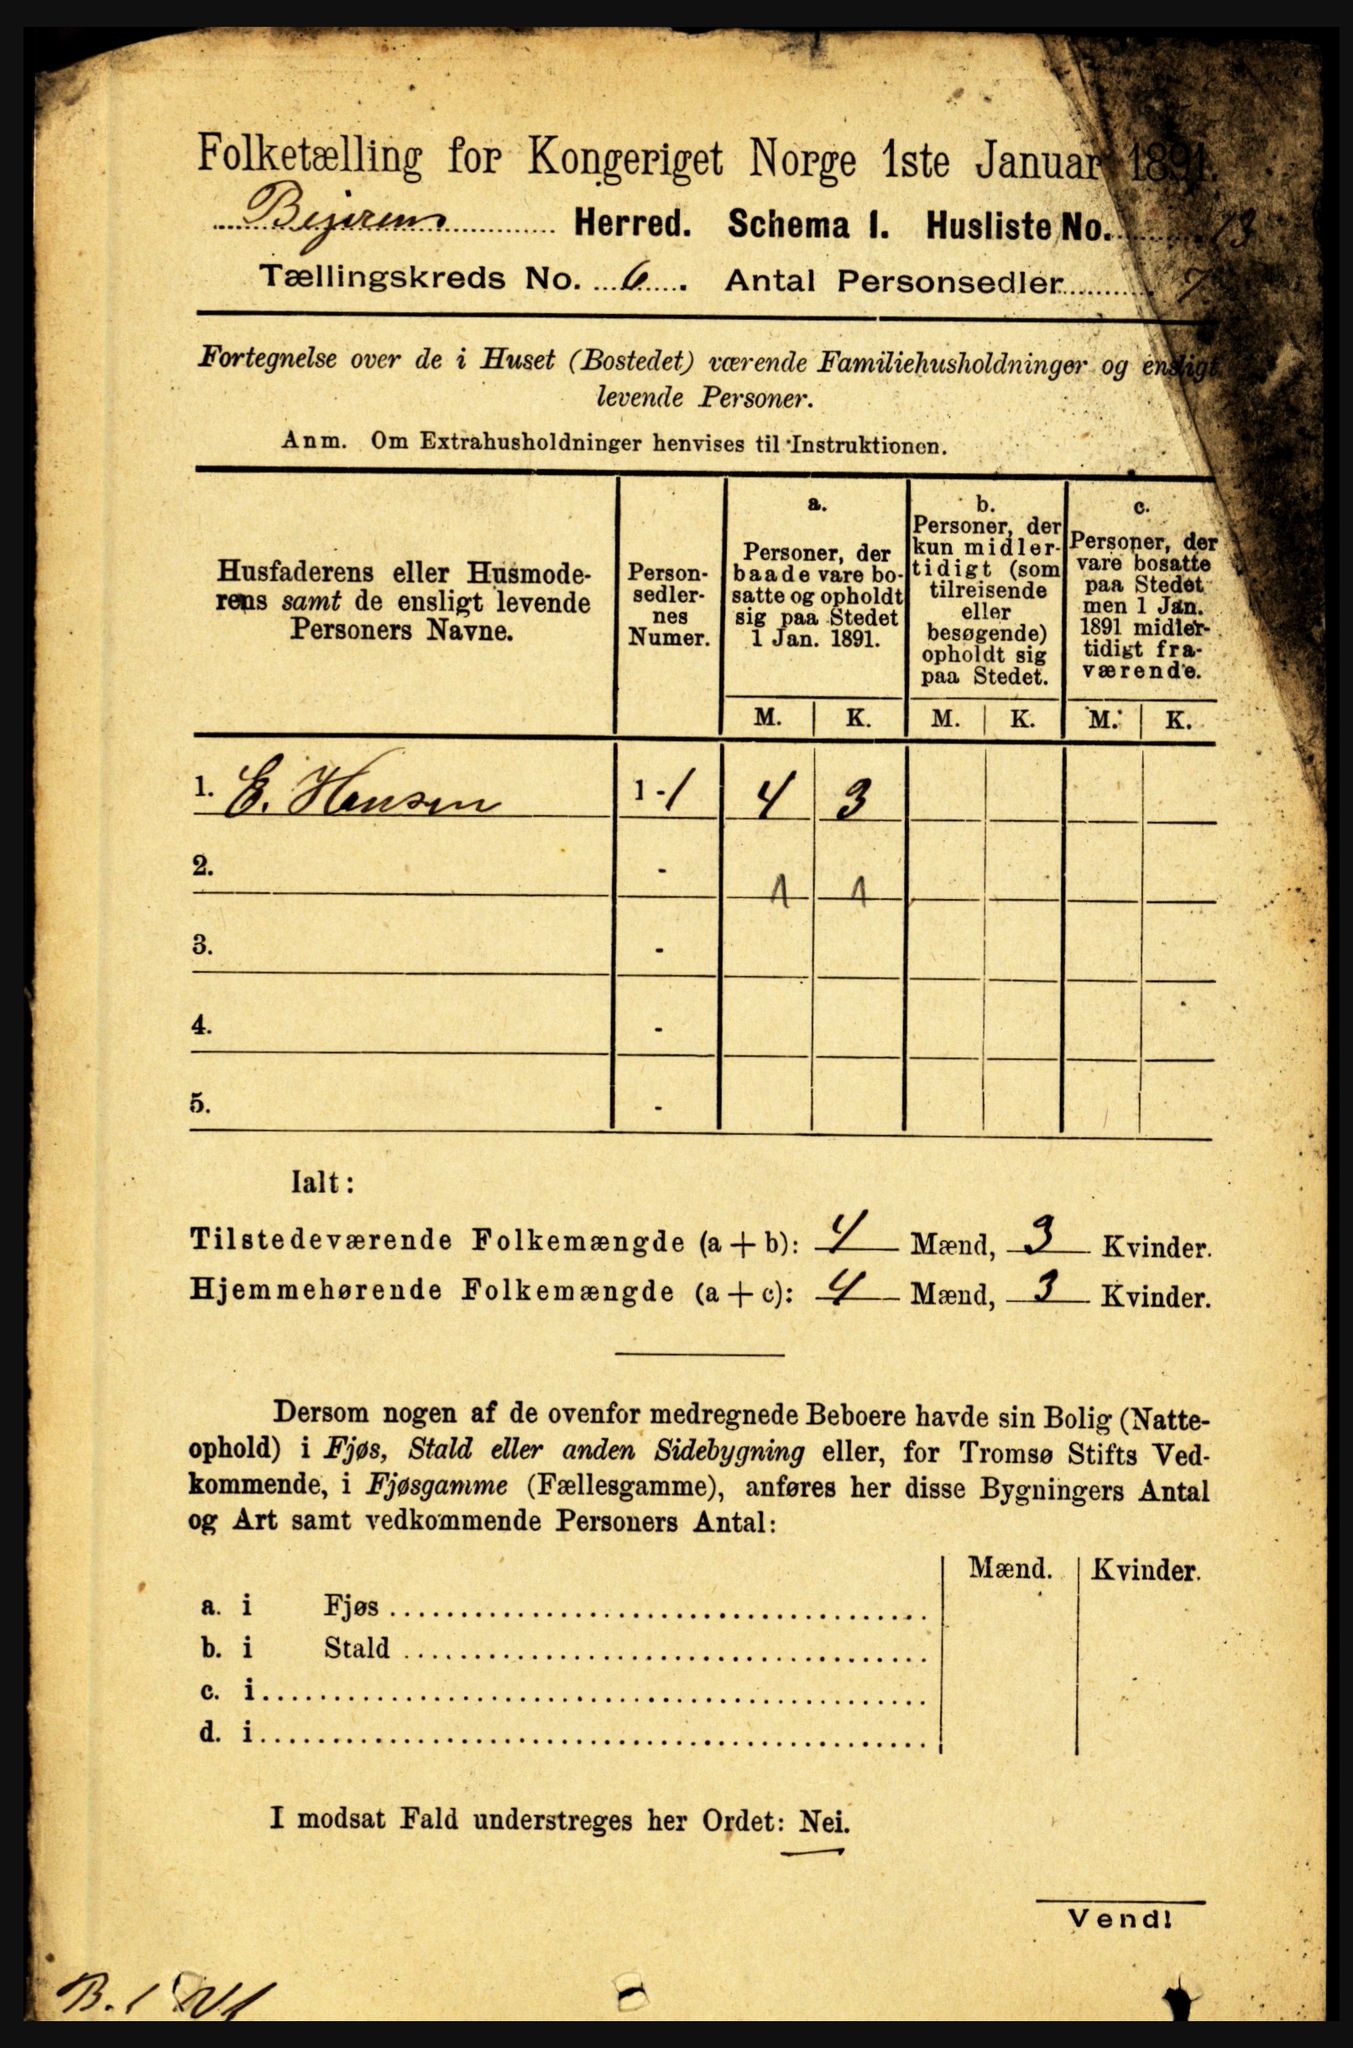 Folketælling for Kongeriget Norge 1ste Januar 1891.
Bejerens Herred. Schema I. Husliste No. 13
Tællingskreds No. 6. Antal Personsedler 7
Fortegnelse over de i Huset (Bostedet) værende Familiehusholdninger og ensligt
levende Personer.
Anm. Om Extrahusholdninger henvises til Instruktionen.
Husfaderens eller Husmode-
rens samt de ensligt levende
Personers Navne.
Person-
sedler-
nes
Numer.
a.
Personer, der
baade vare bo-
satte og opholdt
sig paa Stedet
1 Jan. 1891.
b.
Personer, der
kun midler-
tidigt (som
tilreisende
eller
besøgende)
opholdt sig
paa Stedet.
c.
Personer, der
vare bosatte
paa Stedet
men 1 Jan.
1891 midler-
tidigt fra-
værende.
M. K. M. K. M. K.
1. E. Hansen 1 - 1 4 3
2. - 1 1
3. -
4. -
5. -
Ialt:
Tilstedeværende Folkemængde (a + b): 4 Mænd, 3 Kvinder.
Hjemmehørende Folkemængde (a + c): 4 Mænd, 3 Kvinder.
Dersom nogen af de ovenfor medregnede Beboere havde sin Bolig (Natte-
ophold) i Fjøs, Stald eller anden Sidebygning eller, for Tromsø Stifts Ved-
kommende, i Fjøsgamme (Fællesgamme), anføres her disse Bygningers Antal
og Art samt vedkommende Personers Antal:
Mænd. Kvinder.
a. i Fjøs
b. i Stald
c. i
d. i
I modsat Fald understreges her Ordet: Nei.
Vend!
B. 1